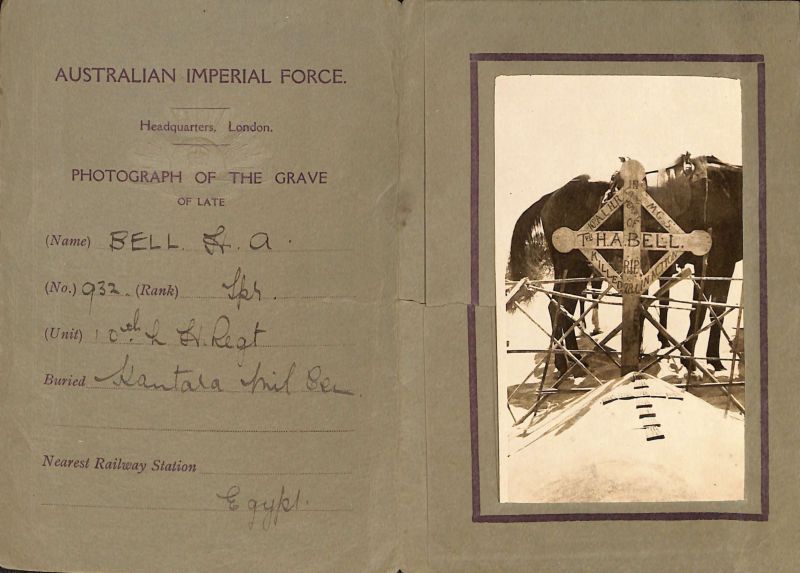 AUSTRALIAN IMPERIAL FORCE.
Headquarters, London.
PHOTOGRAPH OF THE GRAVE
OF LATE
(Name) BELL H. A.
(No.) 932. (Rank) Tpr.
(Unit) 10th L H. Regt
Buried Kantara Mil Cem
Nearest Railway Station
Egypt.
IN
OF
M.G.S.
Tpr H.A.BELL.
R.I.P.
KILLED
IN ACTION